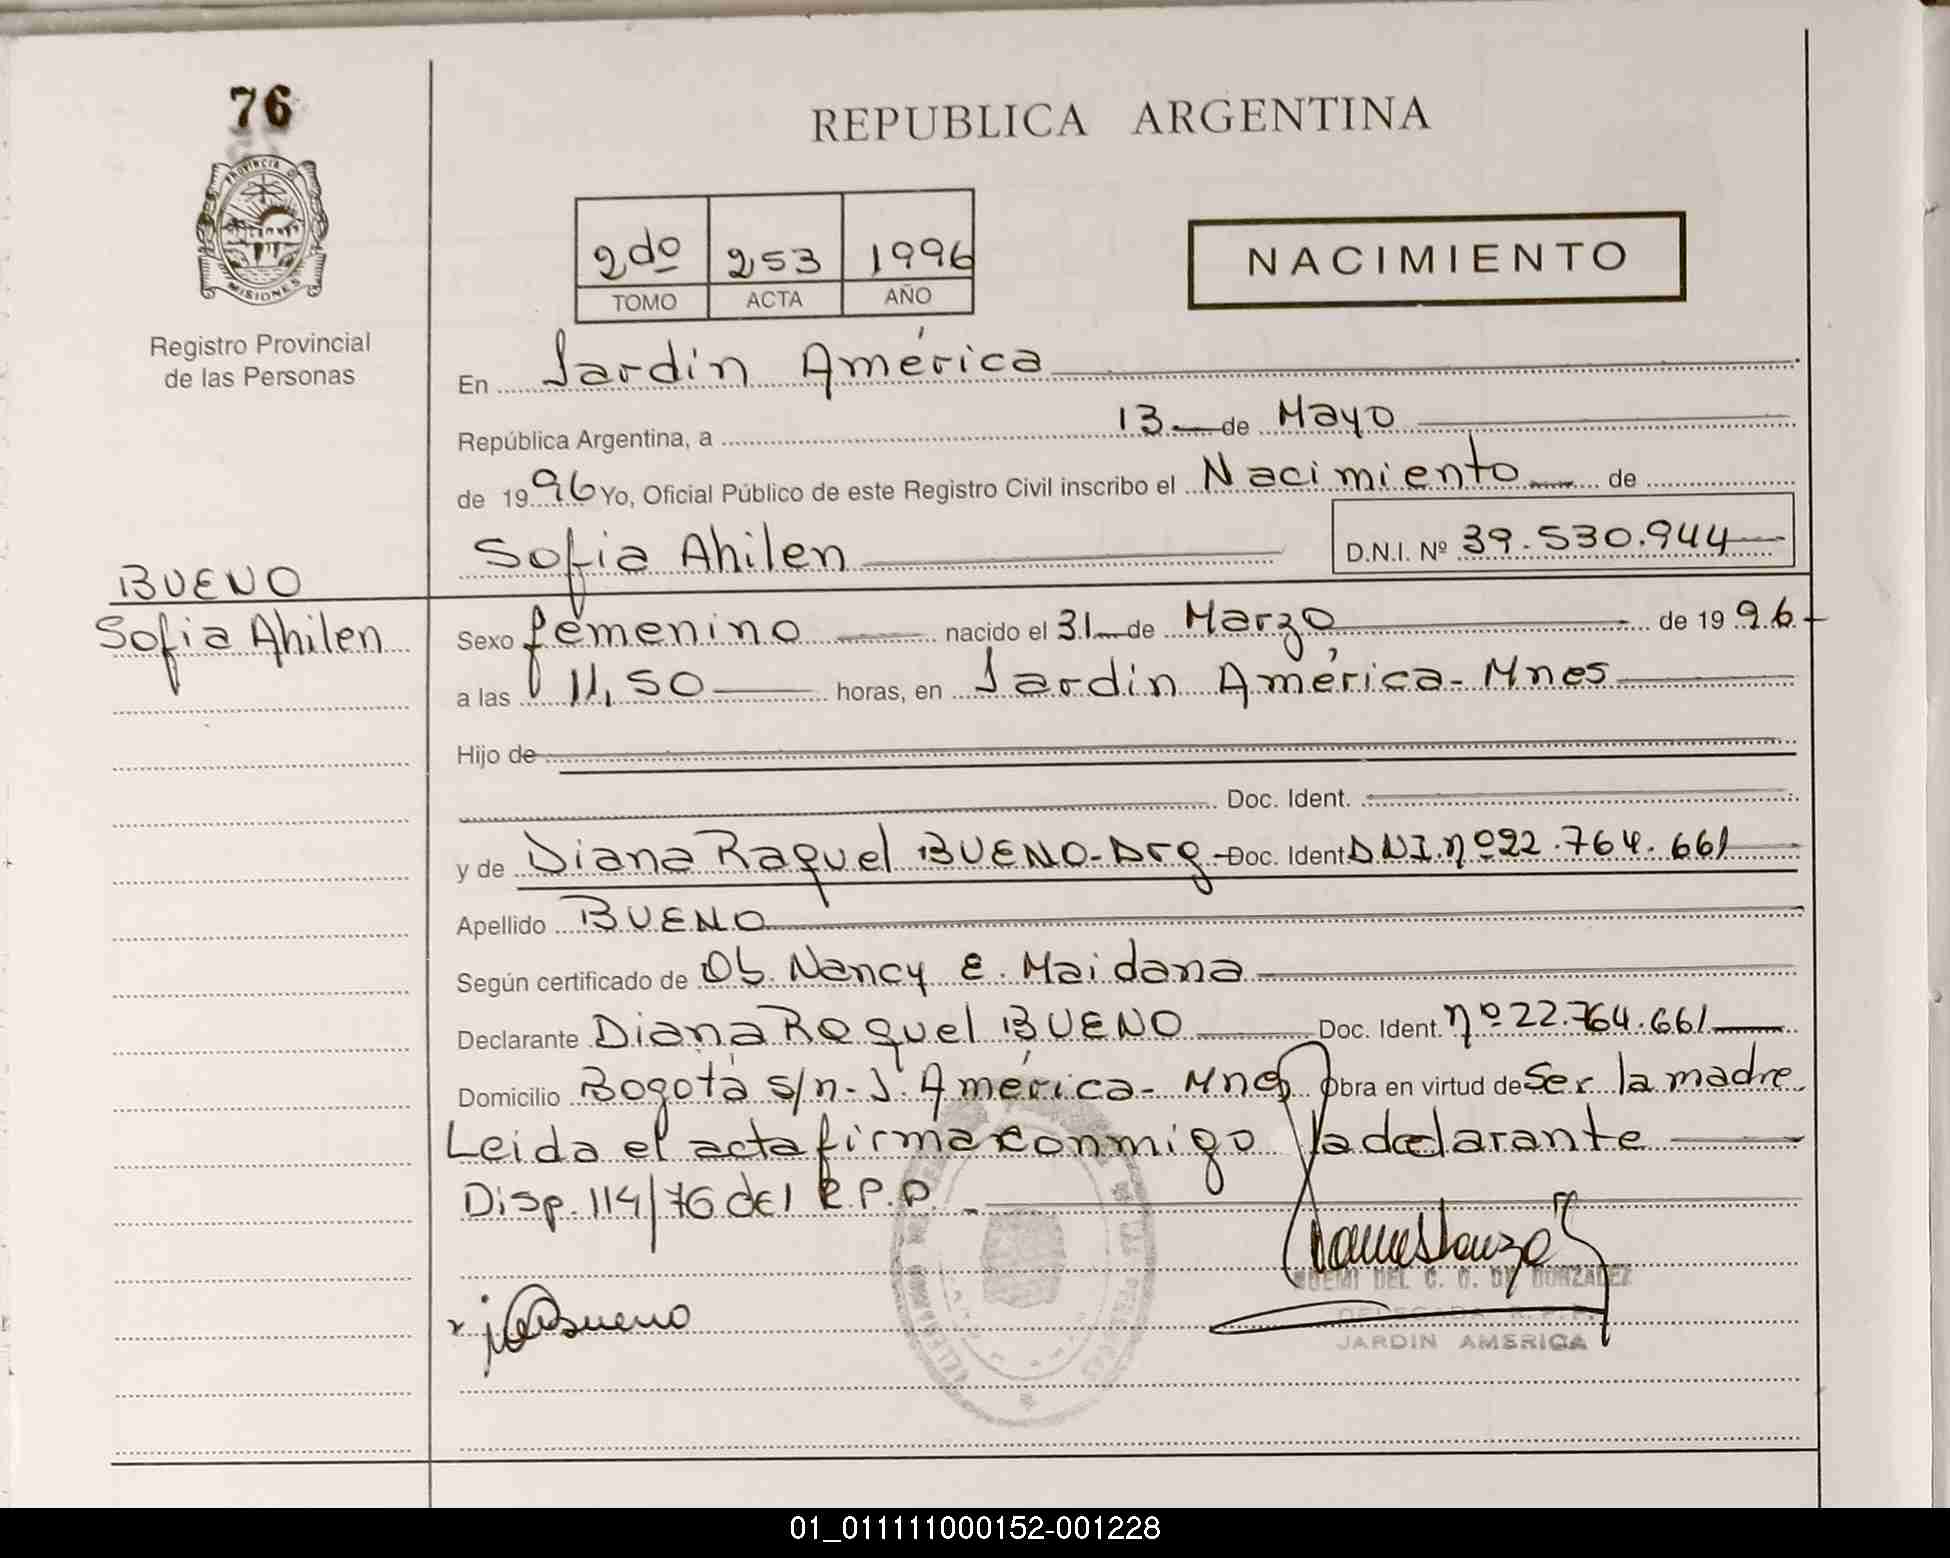 76
REPUBLICA ARGENTINA
PROVINCIA D
MISIONES
Registro Provincial
de las Personas
2do 253 1996
TOMO ACTA AÑO
NACIMIENTO
En Jardín América
República Argentina, a 13 de Mayo
de 1996 Yo, Oficial Público de este Registro Civil inscribo el Nacimiento de
Sofia Ahilen D.N.I. Nº 39.530.944
BUENO
Sofia Ahilen
Sexo femenino nacido el 31 de Marzo de 1996
a las 11,50 horas, en Jardin América - Mnes
Hijo de
Doc. Ident.
y de Diana Raquel BUENO - Arg - Doc. Ident DNI. nº 22.764.661
Apellido BUENO
Según certificado de Ob. Nancy E. Maidana
Declarante Diana Raquel BUENO Doc. Ident. nº 22.764.661
Domicilio Bogotá s/n - J. América - Mnes Obra en virtud de Ser la madre
Leida el acta firma conmigo la declarante
Disp. 114/76 del R.P.P.
Bueno
DEL C. G. DE GONZALEZ
DELEGADA R.P.P.
JARDIN AMERICA
01_011111000152-001228